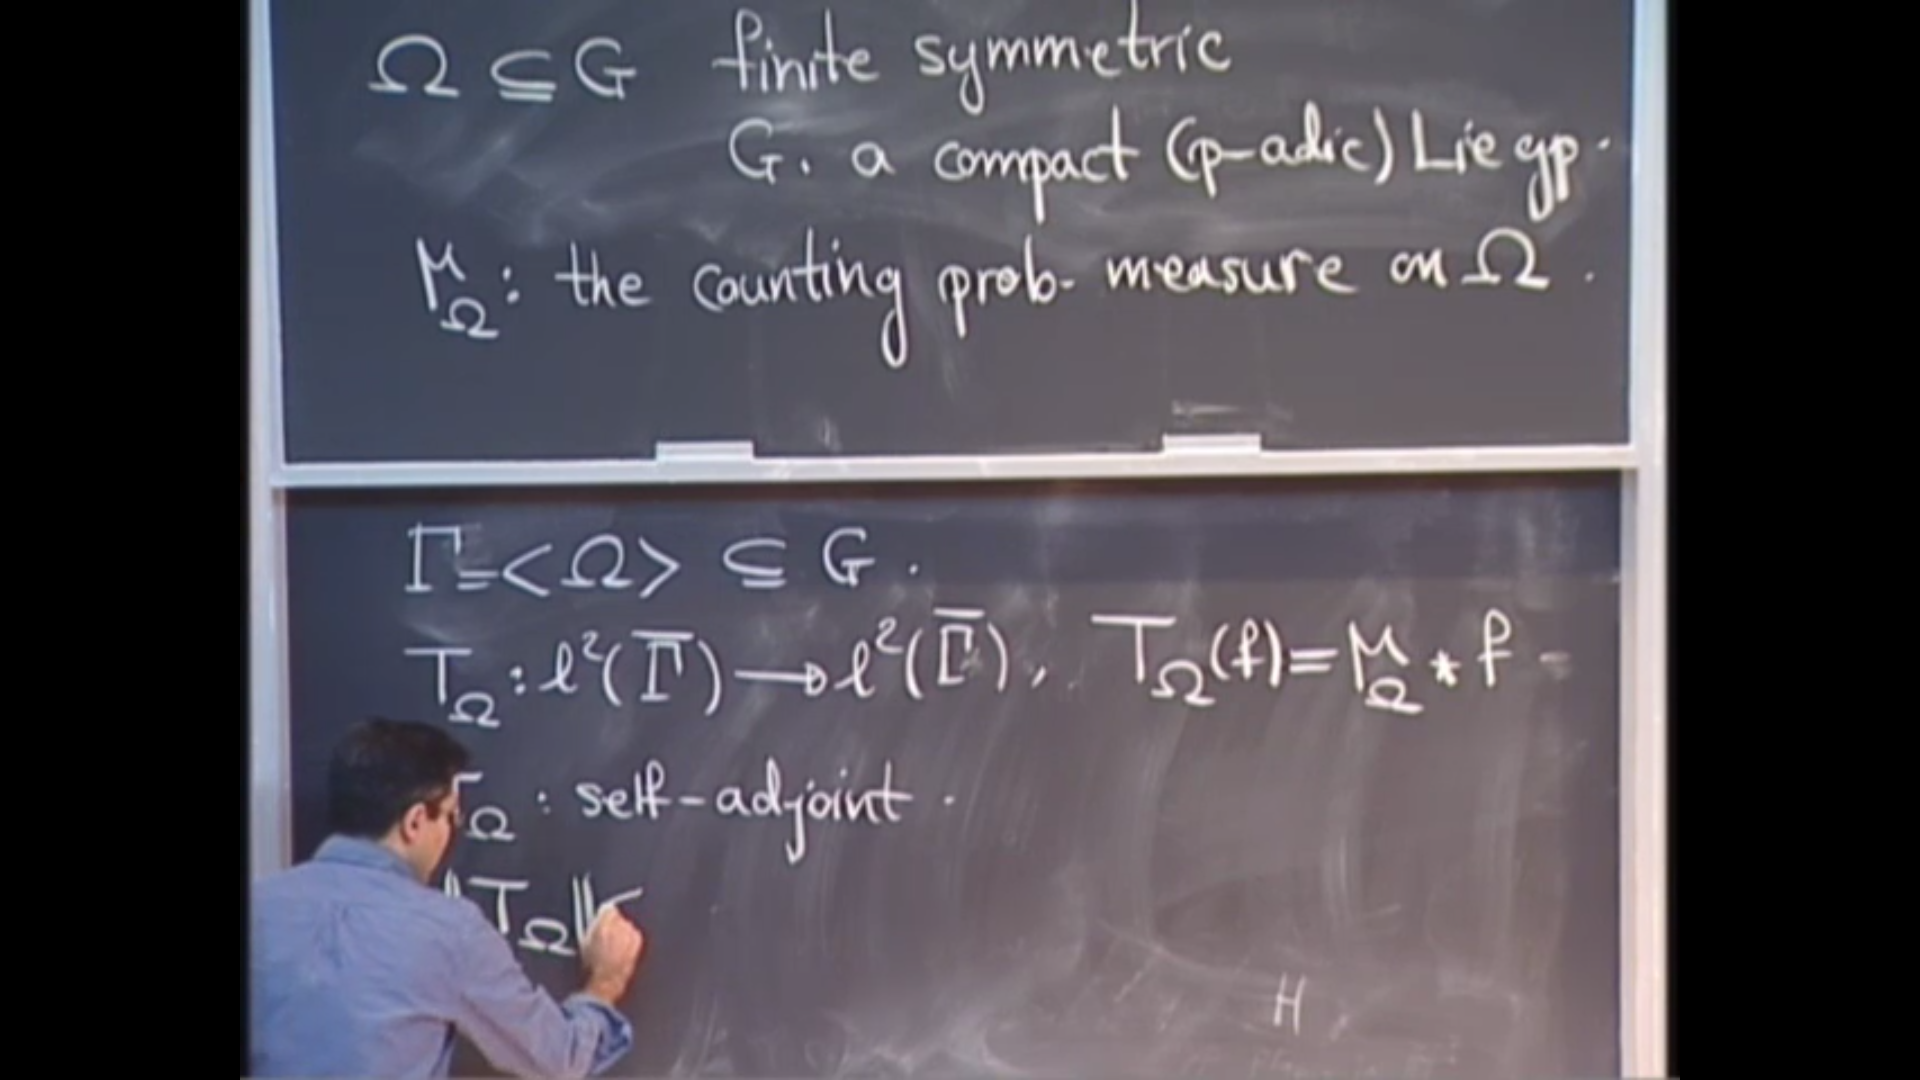 Ω ⊆ G finite symmetric
G. a compact (p-adic) Lie gp.
μ_Ω : the counting prob. measure on Ω .
Γ=<Ω> ⊆ G .
T_Ω : l²(Γ̅) → l²(Γ̅), T_Ω(f)=μ_Ω * f -
T_Ω : self-adjoint .
‖T_Ω‖
H